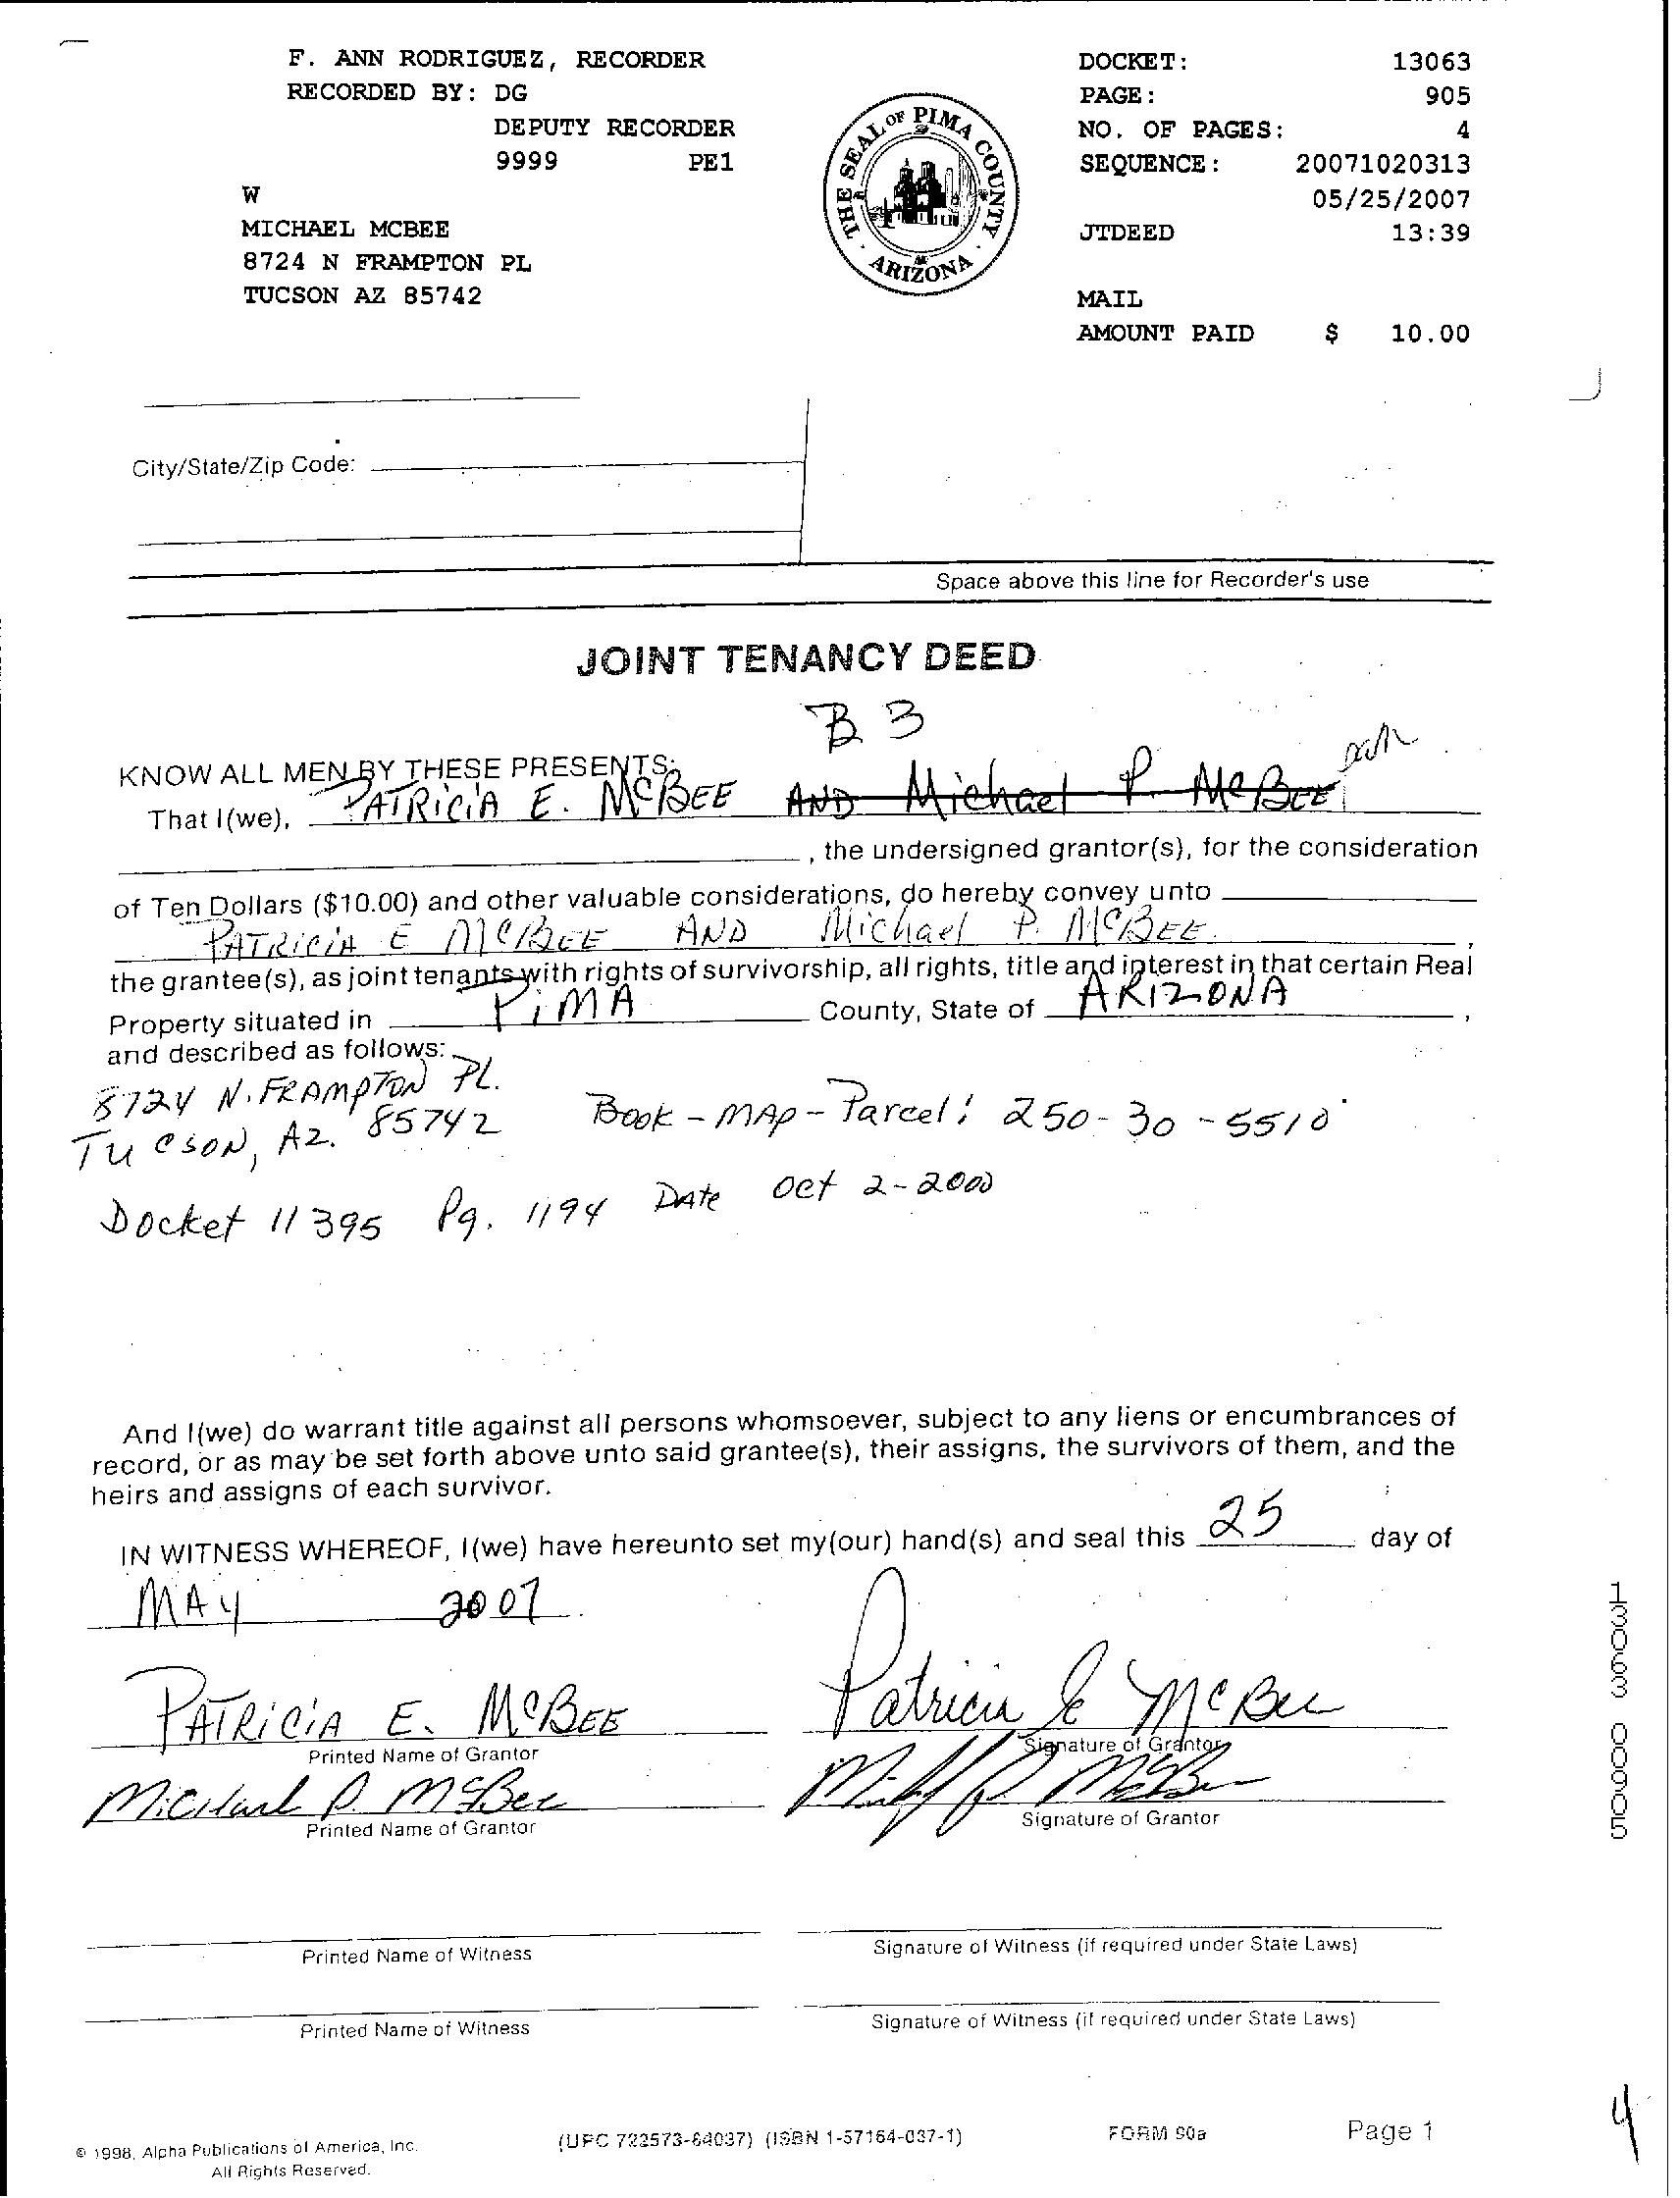 F. ANN RODRIGUEZ, RECORDER
RECORDED BY: DG
DEPUTY RECORDER
9999 PE1
W
MICHAEL MCBEE
8724 N FRAMPTON PL
TUCSON AZ 85742
THE SEAL OF PIMA COUNTY · ARIZONA ·
DOCKET: 13063
PAGE: 905
NO. OF PAGES: 4
SEQUENCE: 20071020313
05/25/2007
JTDEED 13:39
MAIL
AMOUNT PAID $ 10.00
City/State/Zip Code:
Space above this line for Recorder's use
JOINT TENANCY DEED
B 3
KNOW ALL MEN BY THESE PRESENTS:
That I(we), PATRICIA E. MCBEE AND Michael P. McBEE
, the undersigned grantor(s), for the consideration
of Ten Dollars ($10.00) and other valuable considerations, do hereby convey unto
PATRICIA E MCBEE AND Michael P. MCBEE,
the grantee(s), as joint tenants with rights of survivorship, all rights, title and interest in that certain Real
Property situated in PIMA County, State of ARIZONA,
and described as follows:
8724 N. FRAMPTON PL.
TUCSON, AZ. 85742 Book - MAp - Parcel: 250-30-5510
Docket 11395 Pg. 1194 DAte Oct 2-2000
And I(we) do warrant title against all persons whomsoever, subject to any liens or encumbrances of
record, or as may be set forth above unto said grantee(s), their assigns, the survivors of them, and the
heirs and assigns of each survivor.
IN WITNESS WHEREOF, I(we) have hereunto set my(our) hand(s) and seal this 25 day of
MAY 2007
PATRICIA E. MCBEE Patricia E McBee
Printed Name of Grantor Signature of Grantor
Michael P. McBee
Printed Name of Grantor Signature of Grantor
Printed Name of Witness Signature of Witness (if required under State Laws)
Printed Name of Witness Signature of Witness (if required under State Laws)
13063 00905
© 1998, Alpha Publications of America, Inc.
All Rights Reserved.
(UPC 722573-64037) (ISBN 1-57164-037-1)
FORM 90a
Page 1
4